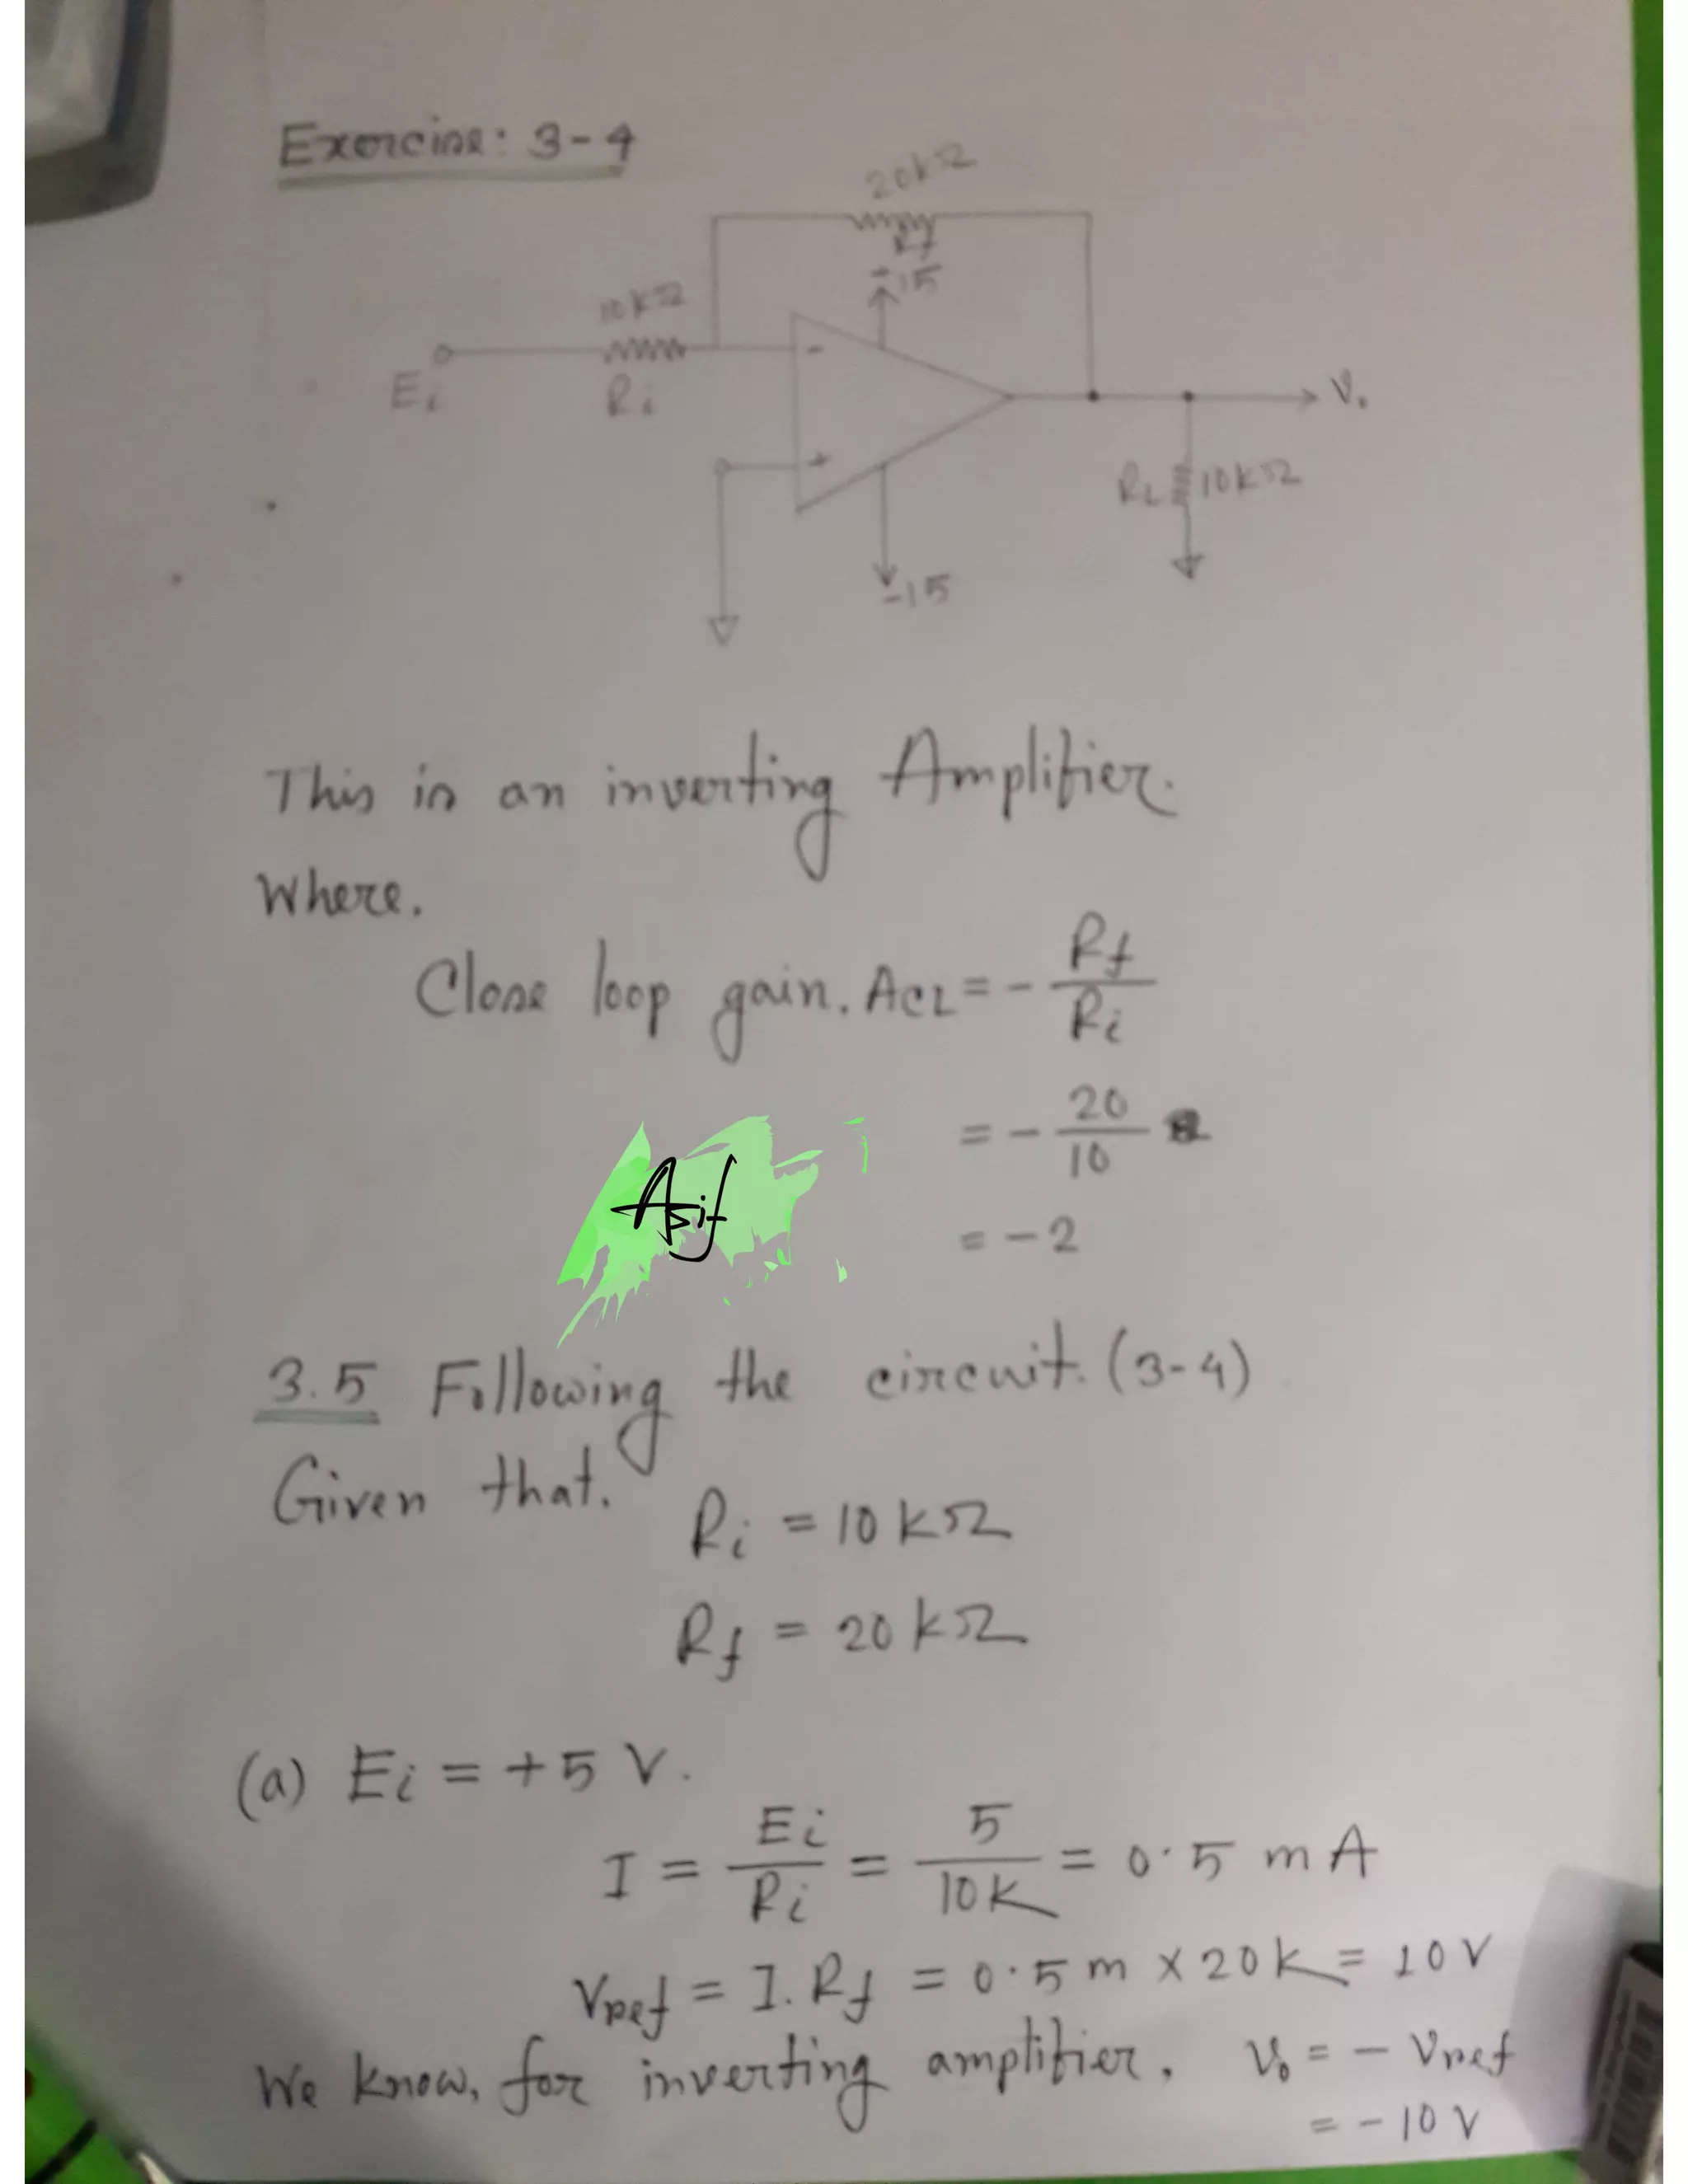 Exercise: 3-4
20kΩ
Rf
+15
10kΩ
Ei
Ri
-
+
V.
RL 10kΩ
-15
This is an inverting Amplifier.
Where.
Close loop gain. ACL = - Rf/Ri
= - 20/10
= -2
Asif
3.5 Following the circuit. (3-4)
Given that.
Ri = 10kΩ
Rf = 20kΩ
(a) Ei = +5 V.
I = Ei/Ri = 5/10K = 0.5 mA
Vref = I. Rf = 0.5m x 20k = 10V
We know, for inverting amplifier, Vo = - Vref
= -10V